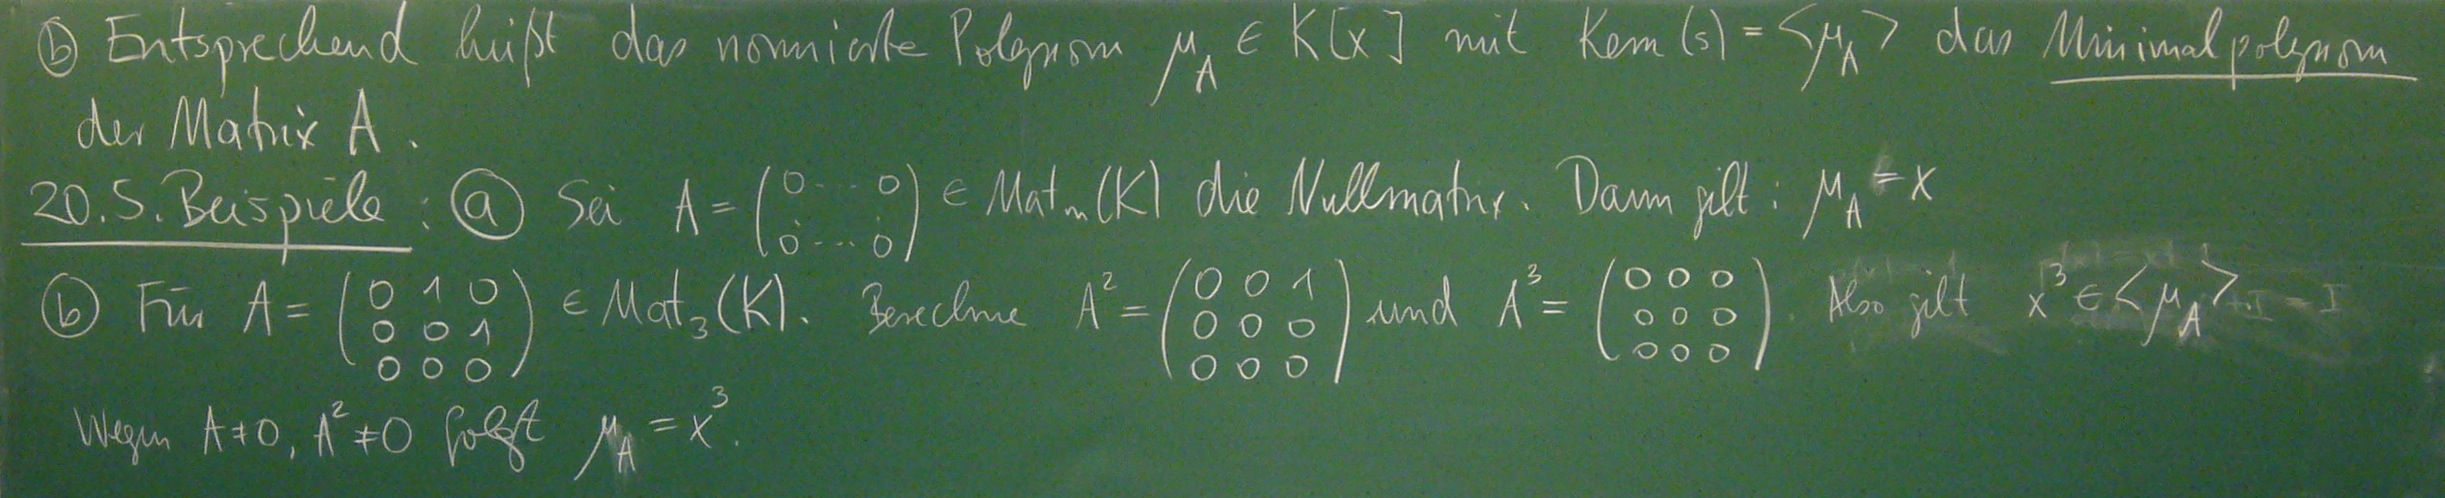 ⓑ Entsprechend heißt das normierte Polynom μ_A ∈ K[x] mit Kern(s) = <μ_A> das Minimalpolynom
der Matrix A.
20.5. Beispiele: ⓐ Sei A = (0 ... 0 ; ⋮ ⋮ ; 0 ... 0) ∈ Mat_n(K) die Nullmatrix. Dann gilt: μ_A = x
ⓑ Für A = (0 1 0 ; 0 0 1 ; 0 0 0) ∈ Mat_3(K). Berechne A² = (0 0 1 ; 0 0 0 ; 0 0 0) und A³ = (0 0 0 ; 0 0 0 ; 0 0 0). Also gilt x³ ∈ <μ_A>
Wegen A ≠ 0, A² ≠ 0 folgt μ_A = x³.